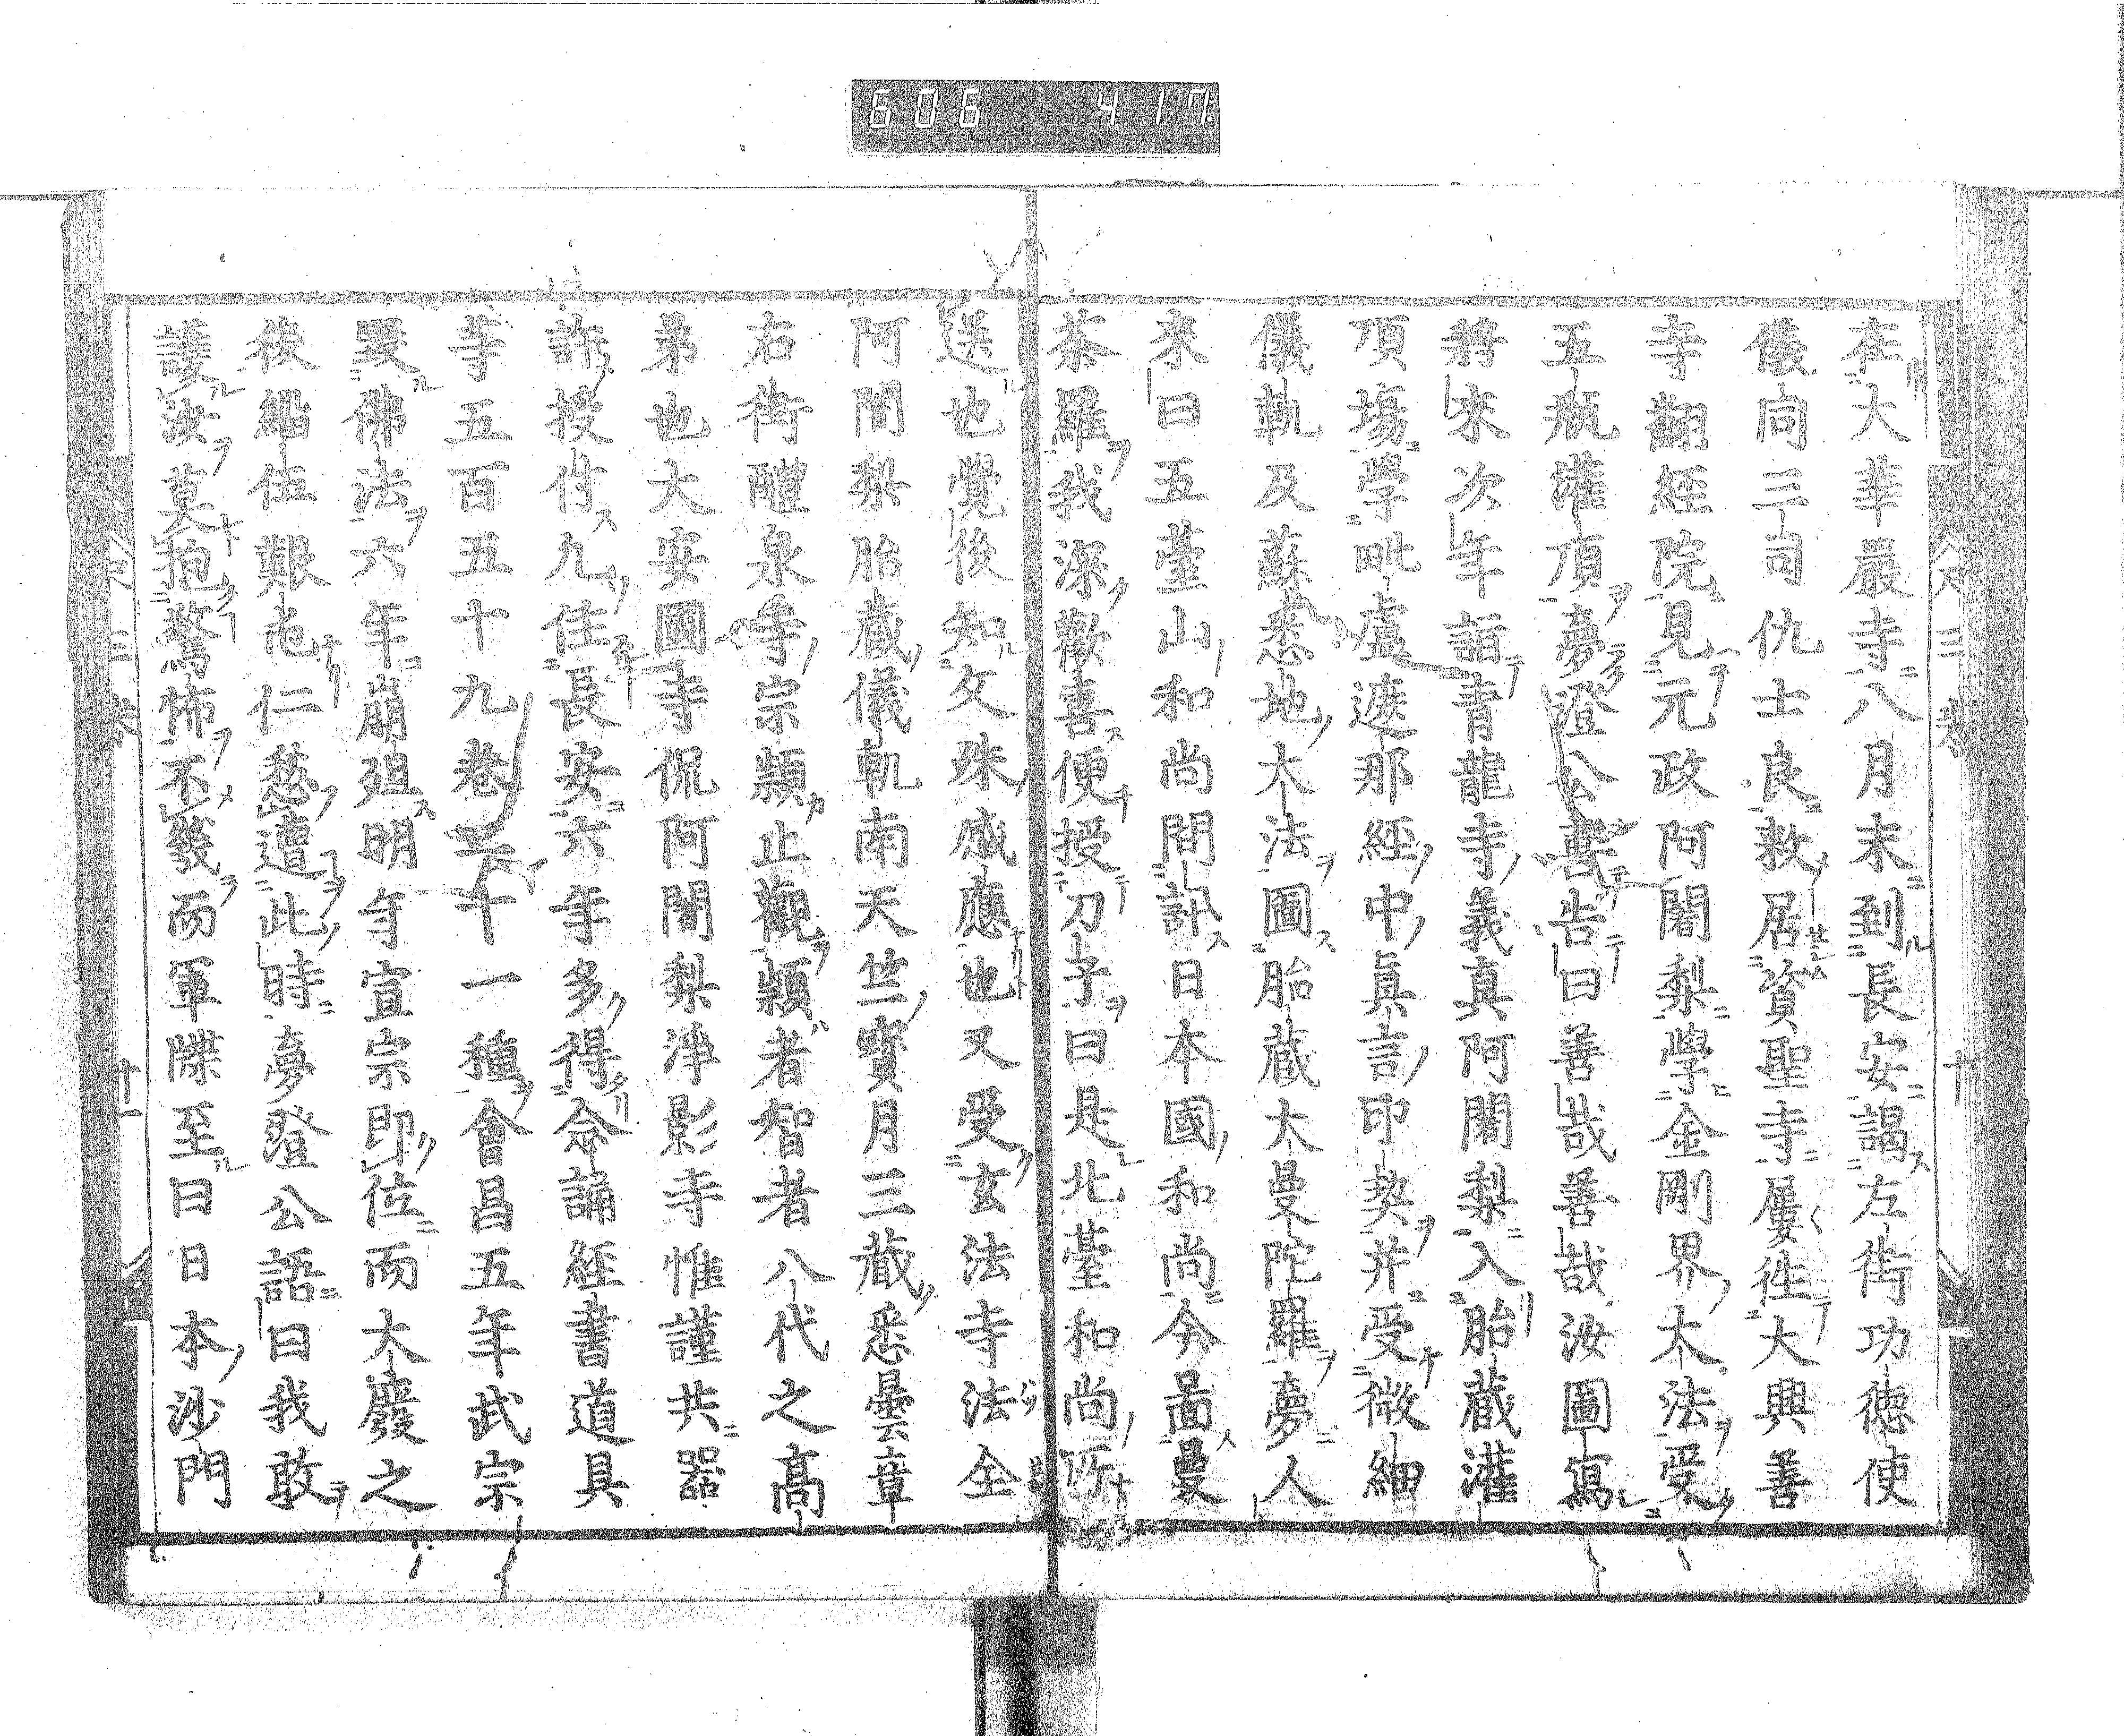 606 417
在大華嚴寺八月末到長安謁左街功德使
儀同三司仇士良敕居資聖寺屢徃大興善
寺翻經院見元政阿闍梨學金剛界大法受
五瓶灌頂夢澄公暫告曰善哉善哉汝圖寫
將來次年詣青龍寺義真阿闍梨入胎藏灌
頂塲學毗盧遮那經中眞言印契并受微細
儀軌及蘇悉地大法圖胎藏大曼陀羅夢人
來曰五臺山和尚問訊日本國和尚今畫曼
荼羅我深歡喜便授刀子曰是北臺和尚所
送也覺後知文殊感應也又受玄法寺法全
阿闍梨胎藏儀軌南天竺寳月三藏悉曇章
右街醴泉寺宗頴止觀頴者智者八代之髙
弟也大安國寺侃阿闍梨淨影寺惟謹共器
許授付凡住長安六年多得念誦經書道具
等五百五十九卷二十一種會昌五年武宗
毀佛法六年崩殂明年宣宗即位而大廢之
後緇伍艱危仁愁遭此時夢澄公語曰我敢
護汝莫抱驚怖不幾而軍牒至曰日本沙門